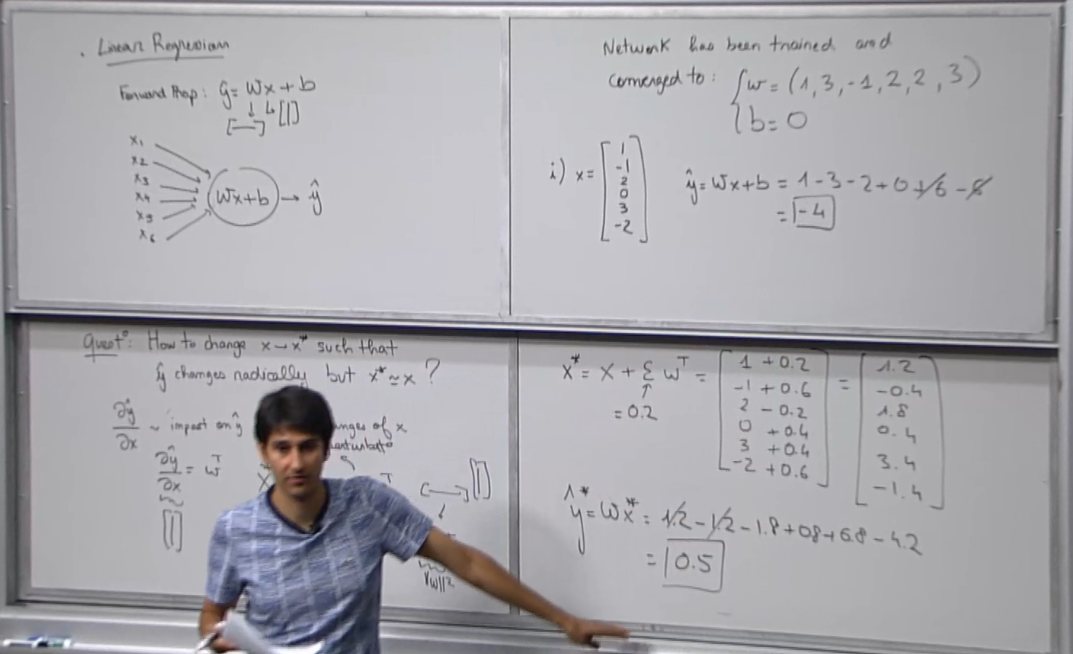 . Linear Regression
Forward Prop: ŷ = Wx + b
x1
x2
x3
x4
x5
x6
Wx+b → ŷ
Network has been trained and
converged to: { w = (1, 3, -1, 2, 2, 3)
b = 0
i) x = [ 1
-1
2
0
3
-2 ]
ŷ = Wx+b = 1 - 3 - 2 + 0 + 6 - 6
= -4
Quest°: How to change x → x* such that
ŷ changes radically but x* ≃ x ?
∂ŷ/∂x ~ impact on ŷ
of x
∂ŷ/∂x = wᵀ
||w||²
x* = x + ε wᵀ = [ 1 + 0.2
-1 + 0.6
2 - 0.2
0 + 0.4
3 + 0.4
-2 + 0.6 ]
= [ 1.2
-0.4
1.8
0.4
3.4
-1.4 ]
↑
= 0.2
ŷ* = Wx* = 1.2 - 1.2 - 1.8 + 0.8 + 6.8 - 4.2
= 0.5